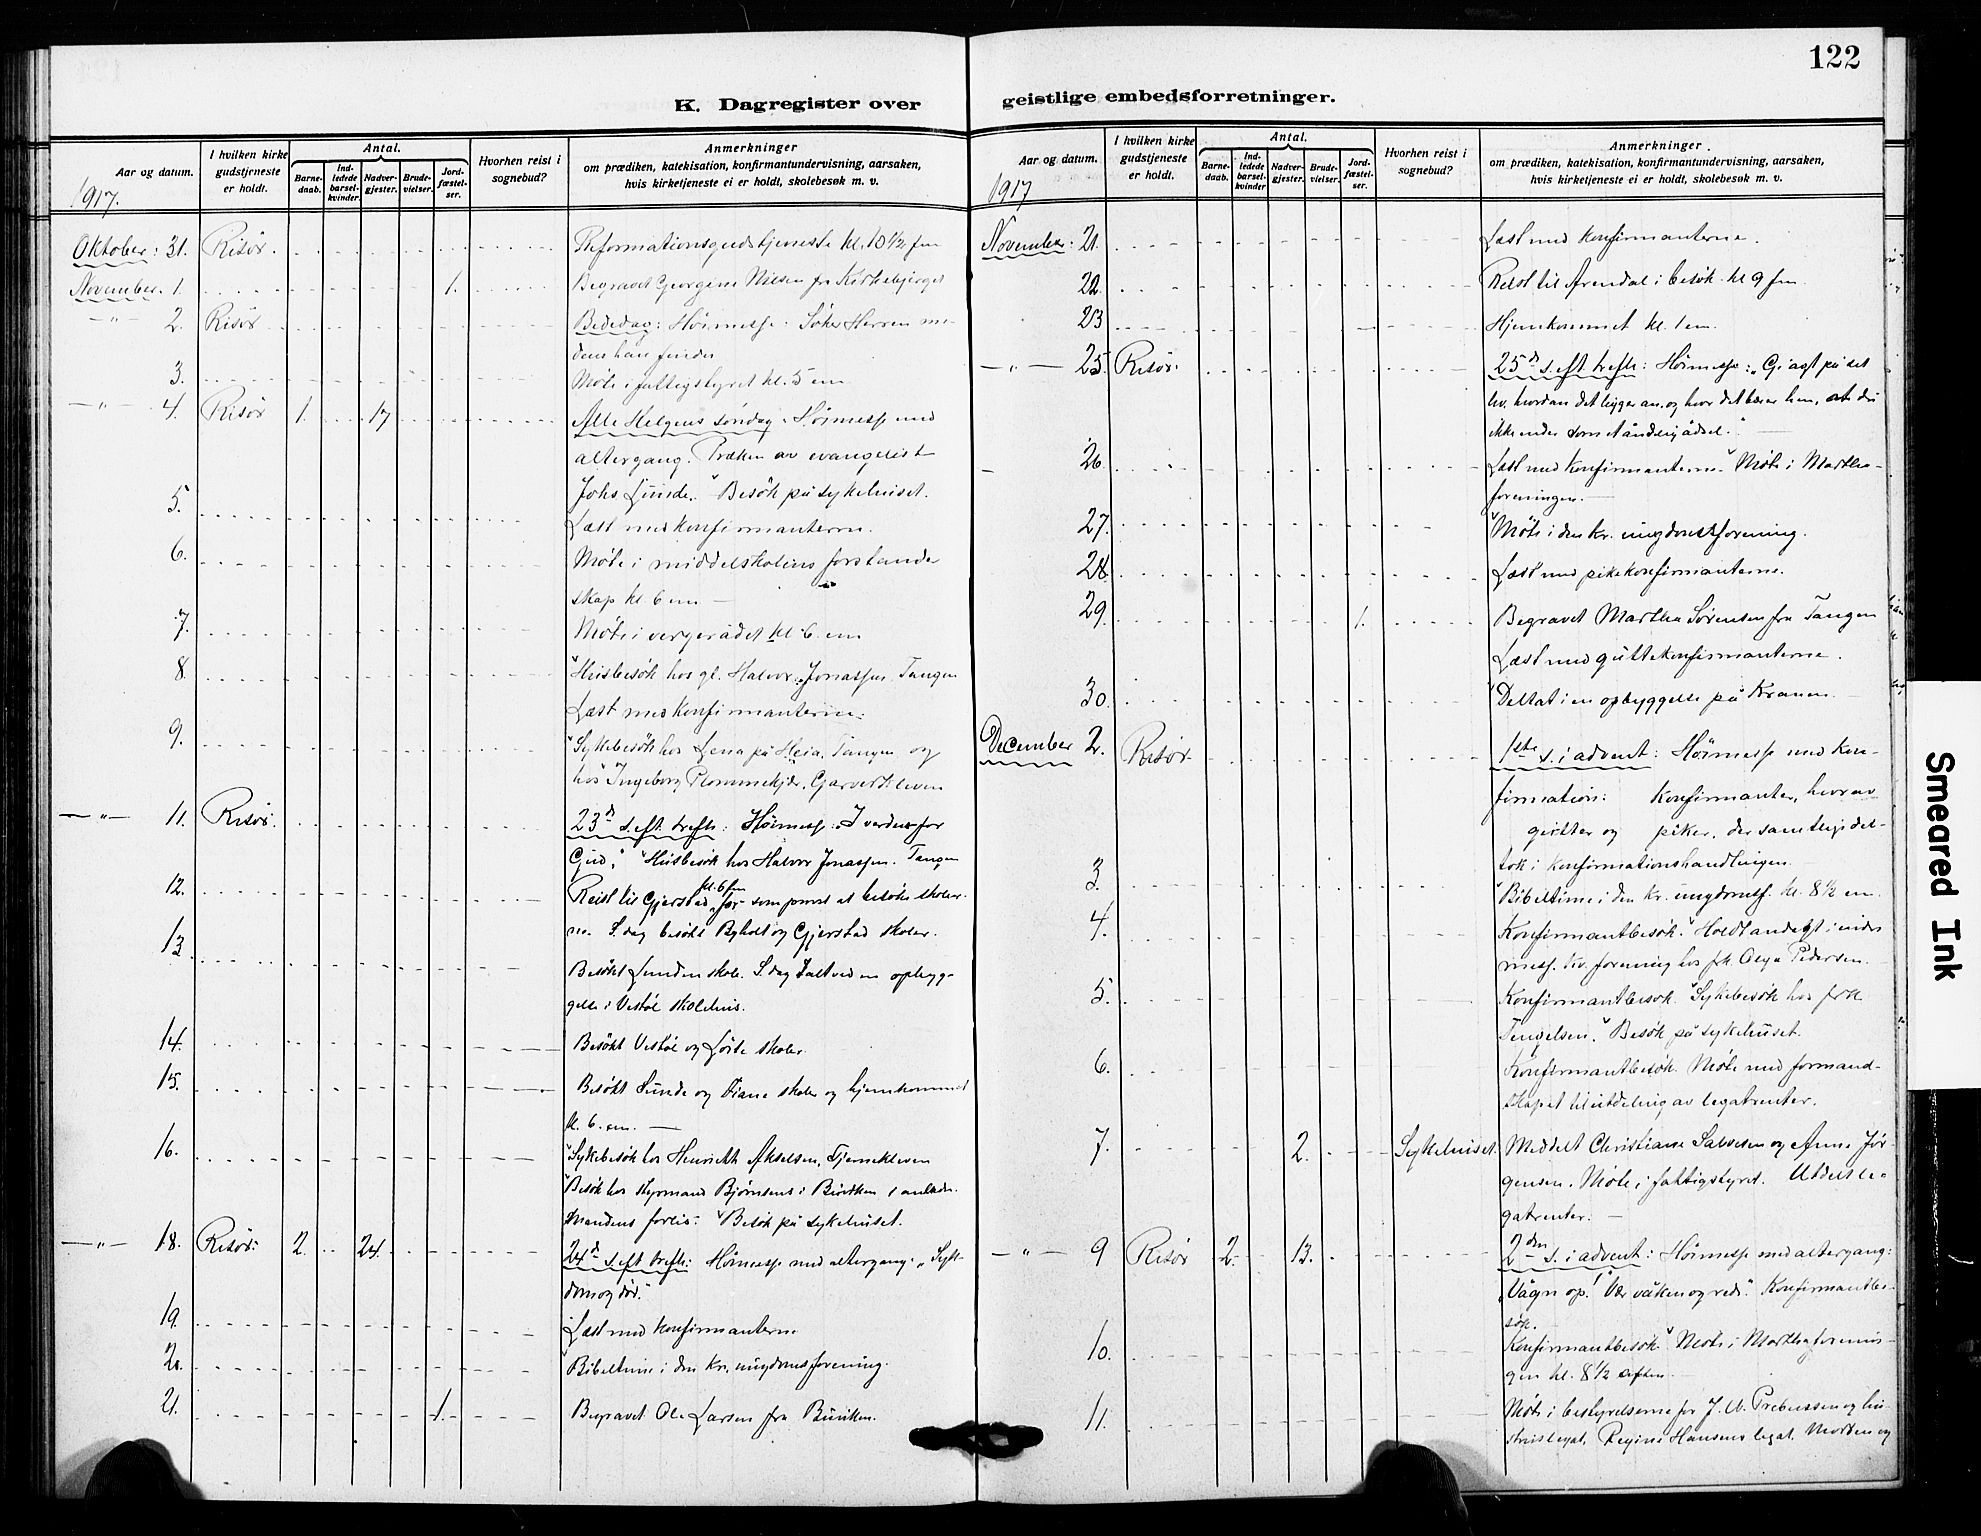 122
K. Dagregister over geistlige embedsforretninger.
Aar og datum.
I hvilken kirke gudstjeneste er holdt.
Antal.
Barne-daab.
Ind-ledede barsel-kvinder.
Nadver-gjester.
Brude-vielser.
Jord-fæstel-ser.
Hvorhen reist i sognebud?
Anmerkninger
om prædiken, katekisation, konfirmantundervisning, aarsaken,
hvis kirketjeneste ei er holdt, skolebesøk m. v.
1917.
Oktober: 31. Risør. Reformationsgudstjeneste kl. 10 1/2 fm
November. 1. 1. Begravet Georgine Nilsen fra Kirkebjerget
-"- 2. Risør Bededag: Høimesse: Søker Herren me-
dens han findes
3. Møte i fattigstyret kl. 5 em
-"- 4. Risør 1. 17 Alle Helgens søndag: Høimesse med
altergang. Præken av evangelist
Johs Lunde. Besøk på sykehuset.
5. Læst med konfirmanterne.
6. Møte i middelskolens forstander
skap kl. 6 em —
7. Møte i vergerådet kl. 6. em
8. Husbesøk hos gl. Halvor Jonassen, Tangen
Læst med konfirmanterne.
9. Sykebesøk hos Lena på Heia, Tangen og
hos Ingeborg Plommekjær, Garverkleven
-"- 11. Risør. 23d s. eft. trefh: Høimesse: I verden for
Gud," Husbesøk hos Halvor Jonassen. Tangen
12. Reist til Gjerstad kl. 6 fm for som prost at besøke skoler-
ne. S. dag besøkt Byholt og Gjerstad skoler.
13. Besøkt Lunden skole. S. dag talt ved en opbyg-
gelse i Vestøl skolehus.
14. Besøkt Vestøl og Løite skoler.
15. Besøkt Sunde og Fiane skoler og hjemkommet
kl. 6. em. —
16. Sykebesøk hos Henrikke Akselsen, Tjennekleven
Besøk hos styrmand Bjørnsens i Buviken i anledn.
Mandens forlis. Besøk på sykehuset.
-"- 18. Risør: 2. 24. 24d s. eft trefh: Høimesse med altergang: "Syk-
dom og død."
19. Læst med konfirmanterne
20. Bibeltime i den kr. ungdomsforening.
21. 1. Begravet Ole Larsen fra Buviken.
Aar og datum.
I hvilken kirke gudstjeneste er holdt.
Antal.
Barne-daab.
Ind-ledede barsel-kvinder.
Nadver-gjester.
Brude-vielser.
Jord-fæstel-ser.
Hvorhen reist i sognebud?
Anmerkninger.
om prædiken, katekisation, konfirmantundervisning, aarsaken,
hvis kirketjeneste ei er holdt, skolebesøk m. v.
1917
November: 21. Læst med konfirmanterne.
22. Reist til Arendal i besøk kl 9 fm
23 Hjemkommet kl. 1 em.
-"- 25. Risør. 25d s. eft trefh: Høimesse: "Gi agt på det
liv, hvordan det ligger an, og hvor det bærer hen, at du
ikke ender som et åndelig ådsel." —
26. Læst med konfirmanterne. Møte i Martha-
foreningen. —
27. Møte i den kr. ungdomsforening.
28. Læst med pikekonfirmanterne.
29. 1. Begravet Martha Sørensen fra Tangen
Læst med guttekonfirmanterne.
30. Deltat i en opbyggelse på Kranen.
December 2. Risør. 1ste s. i advent: Høimesse med kon-
firmation: Konfirmanter, hvorav
gutter og piker, der samtlige del-
tok i konfirmationshandlingen.
3. Bibeltime i den kr. ungdomsf. kl. 8 1/2 em.
4. Konfirmantbesøk. Holdt andagt i indre
miss. kv. forening hos frk. Olga Pedersen.
5. Konfirmantbesøk. Sykebesøk hos frk
Tengelsen. Besøk på sykehuset.
6. Konfirmantbesøk. Møte med formand-
skapet til utdeling av legatrenter.
7. 2. Sykehuset. Meddelt Christiane Salvesen og Anne Jør-
gensen. Møte i fattigstyret. Utdelt le-
gatrenter. —
-"- 9 Risør 2. 13. 2den s. i advent: Høimesse med altergang:
"Vågn op! Vær våken og rede". Konfirmantbe-
søk.
10. Konfirmantbesøk. Møte i Marthaforenin-
gen kl. 8 1/2 aften.
11. Møte i bestyrelserne for J. U. Prebensen og hu-
strus legat, Regine Hansens legat, Morten og
Smeared Ink